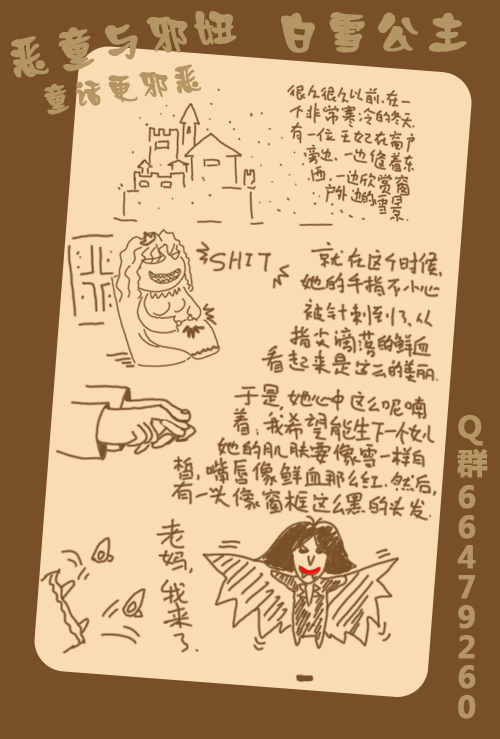 恶童与邪妞 白雪公主
童话更邪恶
很久很久以前,在一
个非常寒冷的冬天.
有一位王妃在窗户
旁边、一边缝着东
西,一边欣赏窗
户外边的雪景.
SHIT
就在这个时候,
她的手指不小心
被针刺到了、从
指尖滴落的鲜血
看起来是这么的美丽.
于是,她心中这么呢喃
着:我希望能生下一个女儿
她的肌肤要像雪一样白
皙,嘴唇像鲜血那么红.然后,
有一头像窗框这么黑的头发.
老妈,我来了.
Q群664479260